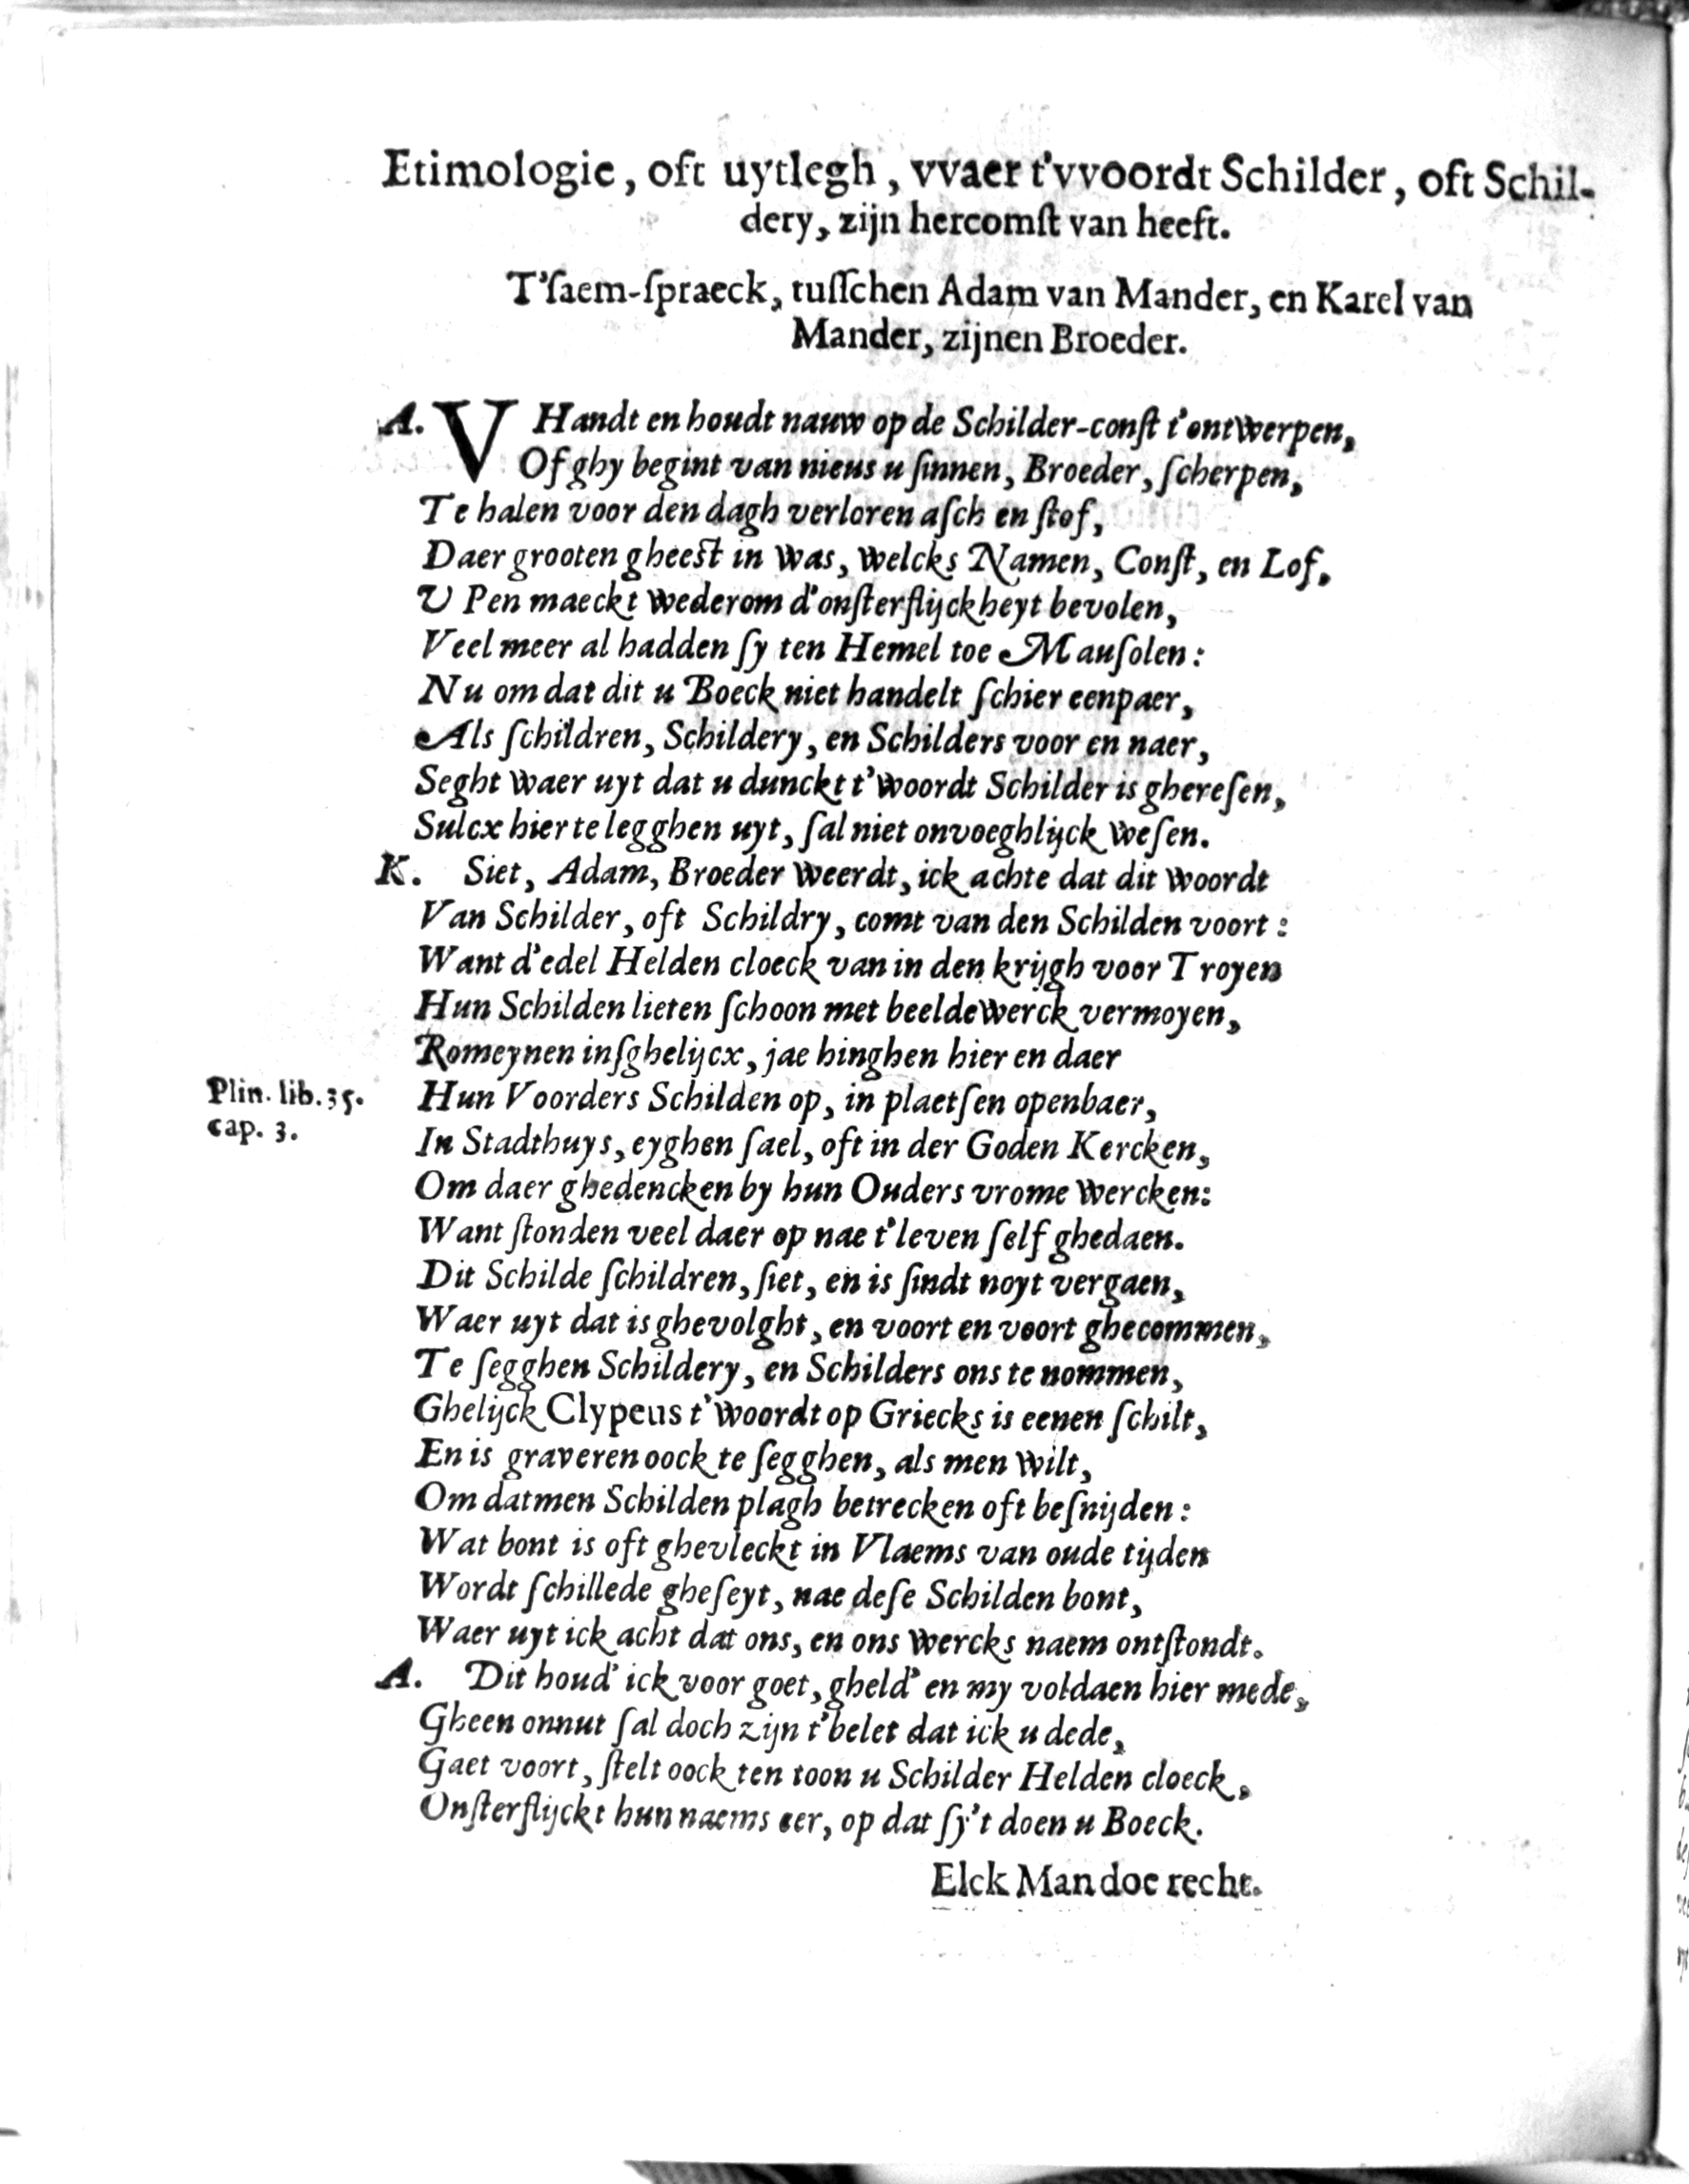 Etimologie, oft uytlegh, vvaer t'vvoordt Schilder, oft Schil-
dery, zijn hercomſt van heeft.
T'ſaem-ſpraeck, tuſſchen Adam van Mander, en Karel van
Mander, zijnen Broeder.
A. V Handt en houdt nauw op de Schilder-conſt t'ontwerpen,
Of ghy begint van nieus u ſinnen, Broeder, ſcherpen,
Te halen voor den dagh verloren aſch en ſtof,
Daer grooten gheest in was, welcks Namen, Conſt, en Lof,
U Pen maeckt wederom d'onſterflijckheyt bevolen,
Veel meer al hadden ſy ten Hemel toe Mauſolen:
Nu om dat dit u Boeck niet handelt ſchier eenpaer,
Als ſchildren, Schildery, en Schilders voor en naer,
Seght waer uyt dat u dunckt t'woordt Schilder is ghereſen,
Sulcx hier te legghen uyt, ſal niet onvoeghlijck weſen.
K. Siet, Adam, Broeder weerdt, ick achte dat dit woordt
Van Schilder, oft Schildry, comt van den Schilden voort:
Want d'edel Helden cloeck van in den krijgh voor Troyen
Hun Schilden lieten ſchoon met beeldewerck vermoyen,
Romeynen inſghelijcx, jae hinghen hier en daer
Plin. lib. 35.
cap. 3.
Hun Voorders Schilden op, in plaetſen openbaer,
In Stadthuys, eyghen ſael, oft in der Goden Kercken,
Om daer ghedencken by hun Ouders vrome wercken:
Want ſtonden veel daer op nae t'leven ſelf ghedaen.
Dit Schilde ſchildren, ſiet, en is ſindt noyt vergaen,
Waer uyt dat is ghevolght, en voort en voort ghecommen,
Te ſegghen Schildery, en Schilders ons te nommen,
Ghelijck Clypeus t'woordt op Griecks is eenen ſchilt,
En is graveren oock te ſegghen, als men wilt,
Om datmen Schilden plagh betrecken oft beſnijden:
Wat bont is oft ghevleckt in Vlaems van oude tijden
Wordt ſchillede gheſeyt, nae deſe Schilden bont,
Waer uyt ick acht dat ons, en ons wercks naem ontſtondt.
A. Dit houd' ick voor goet, gheld' en my voldaen hier mede,
Gheen onnut ſal doch zijn t'belet dat ick u dede,
Gaet voort, ſtelt oock ten toon u Schilder Helden cloeck,
Onſterflijckt hun naems eer, op dat ſy't doen u Boeck.
Elck Man doe recht.